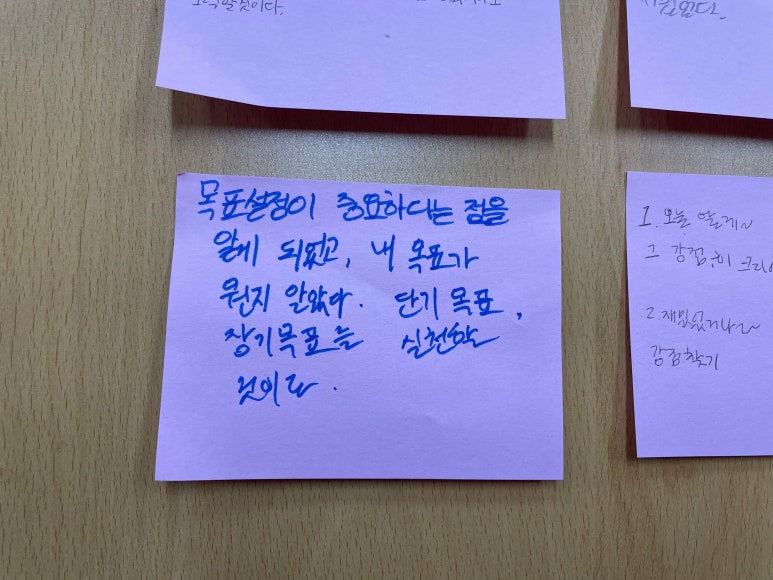 것이다.
없다.
목표설정이 중요하다는 점을
알게 되었고, 내 목표가
뭔지 알았다. 단기 목표,
장기목표를 실천할
것이다.
1. 오늘 알게~
그 강점:이
2. 재밌었거나~
강점찾기